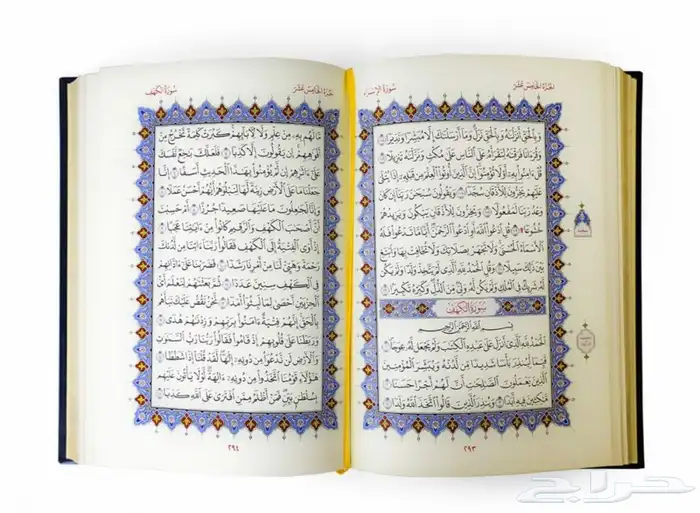 الجزء الخامس عشر سورة الإسراء
وَبِٱلْحَقِّ أَنزَلْنَٰهُ وَبِٱلْحَقِّ نَزَلَ وَمَآ أَرْسَلْنَٰكَ إِلَّا مُبَشِّرًا وَنَذِيرًا ١٠٥
وَقُرْءَانًا فَرَقْنَٰهُ لِتَقْرَأَهُۥ عَلَى ٱلنَّاسِ عَلَىٰ مُكْثٍ وَنَزَّلْنَٰهُ تَنزِيلًا ١٠٦
قُلْ ءَامِنُوا۟ بِهِۦٓ أَوْ لَا تُؤْمِنُوٓا۟ إِنَّ ٱلَّذِينَ أُوتُوا۟ ٱلْعِلْمَ مِن قَبْلِهِۦٓ إِذَا يُتْلَىٰ
عَلَيْهِمْ يَخِرُّونَ لِلْأَذْقَانِ سُجَّدًا ١٠٧ وَيَقُولُونَ سُبْحَٰنَ رَبِّنَآ إِن كَانَ
وَعْدُ رَبِّنَا لَمَفْعُولًا ١٠٨ وَيَخِرُّونَ لِلْأَذْقَانِ يَبْكُونَ وَيَزِيدُهُمْ
خُشُوعًا ١٠٩ قُلِ ٱدْعُوا۟ ٱللَّهَ أَوِ ٱدْعُوا۟ ٱلرَّحْمَٰنَ أَيًّا مَّا تَدْعُوا۟ فَلَهُ
ٱلْأَسْمَآءُ ٱلْحُسْنَىٰ وَلَا تَجْهَرْ بِصَلَاتِكَ وَلَا تُخَافِتْ بِهَا وَٱبْتَغِ
بَيْنَ ذَٰلِكَ سَبِيلًا ١١٠ وَقُلِ ٱلْحَمْدُ لِلَّهِ ٱلَّذِى لَمْ يَتَّخِذْ وَلَدًا وَلَمْ يَكُن
لَّهُۥ شَرِيكٌ فِى ٱلْمُلْكِ وَلَمْ يَكُن لَّهُۥ وَلِىٌّ مِّنَ ٱلذُّلِّ وَكَبِّرْهُ تَكْبِيرًا ١١١
سورة الكهف
بِسْمِ ٱللَّهِ ٱلرَّحْمَٰنِ ٱلرَّحِيمِ
ٱلْحَمْدُ لِلَّهِ ٱلَّذِىٓ أَنزَلَ عَلَىٰ عَبْدِهِ ٱلْكِتَٰبَ وَلَمْ يَجْعَل لَّهُۥ عِوَجَا ١
قَيِّمًا لِّيُنذِرَ بَأْسًا شَدِيدًا مِّن لَّدُنْهُ وَيُبَشِّرَ ٱلْمُؤْمِنِينَ
ٱلَّذِينَ يَعْمَلُونَ ٱلصَّٰلِحَٰتِ أَنَّ لَهُمْ أَجْرًا حَسَنًا ٢
مَّٰكِثِينَ فِيهِ أَبَدًا ٣ وَيُنذِرَ ٱلَّذِينَ قَالُوا۟ ٱتَّخَذَ ٱللَّهُ وَلَدًا ٤
٢٩٣
الجزء الخامس عشر سورة الكهف
مَّا لَهُم بِهِۦ مِنْ عِلْمٍ وَلَا لِءَابَآئِهِمْ كَبُرَتْ كَلِمَةً تَخْرُجُ مِنْ
أَفْوَٰهِهِمْ إِن يَقُولُونَ إِلَّا كَذِبًا ٥ فَلَعَلَّكَ بَٰخِعٌ نَّفْسَكَ
عَلَىٰٓ ءَاثَٰرِهِمْ إِن لَّمْ يُؤْمِنُوا۟ بِهَٰذَا ٱلْحَدِيثِ أَسَفًا ٦ إِنَّا
جَعَلْنَا مَا عَلَى ٱلْأَرْضِ زِينَةً لَّهَا لِنَبْلُوَهُمْ أَيُّهُمْ أَحْسَنُ عَمَلًا ٧
وَإِنَّا لَجَٰعِلُونَ مَا عَلَيْهَا صَعِيدًا جُرُزًا ٨ أَمْ حَسِبْتَ
أَنَّ أَصْحَٰبَ ٱلْكَهْفِ وَٱلرَّقِيمِ كَانُوا۟ مِنْ ءَايَٰتِنَا عَجَبًا ٩
إِذْ أَوَى ٱلْفِتْيَةُ إِلَى ٱلْكَهْفِ فَقَالُوا۟ رَبَّنَآ ءَاتِنَا مِن لَّدُنكَ
رَحْمَةً وَهَيِّئْ لَنَا مِنْ أَمْرِنَا رَشَدًا ١٠ فَضَرَبْنَا عَلَىٰٓ ءَاذَانِهِمْ
فِى ٱلْكَهْفِ سِنِينَ عَدَدًا ١١ ثُمَّ بَعَثْنَٰهُمْ لِنَعْلَمَ أَىُّ
ٱلْحِزْبَيْنِ أَحْصَىٰ لِمَا لَبِثُوٓا۟ أَمَدًا ١٢ نَّحْنُ نَقُصُّ عَلَيْكَ نَبَأَهُم
بِٱلْحَقِّ إِنَّهُمْ فِتْيَةٌ ءَامَنُوا۟ بِرَبِّهِمْ وَزِدْنَٰهُمْ هُدًى ١٣
وَرَبَطْنَا عَلَىٰ قُلُوبِهِمْ إِذْ قَامُوا۟ فَقَالُوا۟ رَبُّنَا رَبُّ ٱلسَّمَٰوَٰتِ
وَٱلْأَرْضِ لَن نَّدْعُوَا۟ مِن دُونِهِۦٓ إِلَٰهًا لَّقَدْ قُلْنَآ إِذًا شَطَطًا ١٤
هَٰٓؤُلَآءِ قَوْمُنَا ٱتَّخَذُوا۟ مِن دُونِهِۦٓ ءَالِهَةً لَّوْلَا يَأْتُونَ عَلَيْهِم
بِسُلْطَٰنٍۭ بَيِّنٍ فَمَنْ أَظْلَمُ مِمَّنِ ٱفْتَرَىٰ عَلَى ٱللَّهِ كَذِبًا ١٥
٢٩٤
حراج